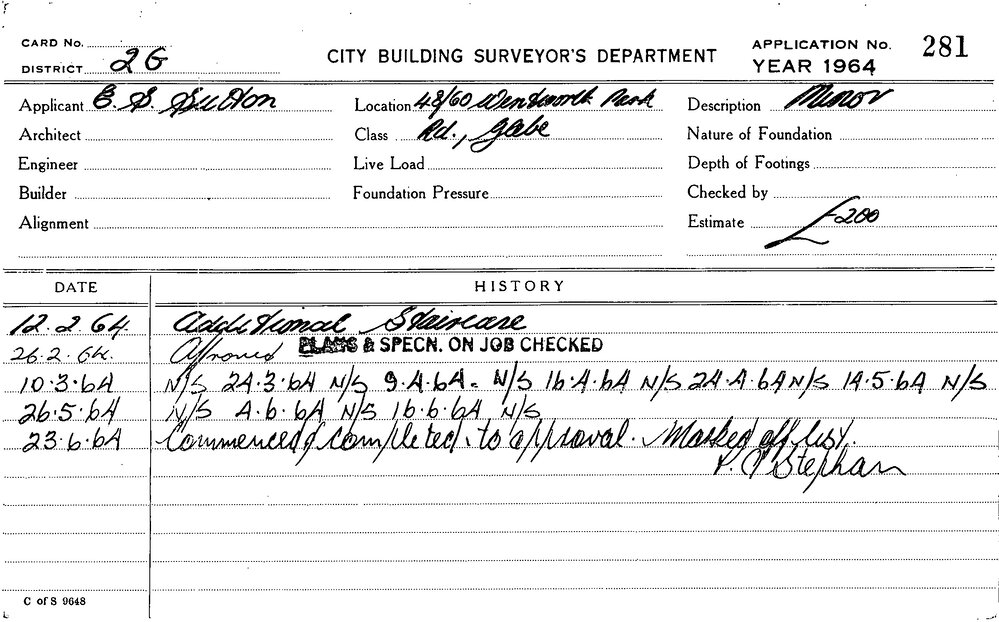 CARD No.
DISTRICT 2G
CITY BUILDING SURVEYOR'S DEPARTMENT
APPLICATION No. 281
YEAR 1964
Applicant E. S. Sutton
Location 48/60 Wentworth Park
Description Minor
Architect
Class Rd., Glebe
Nature of Foundation
Engineer
Live Load
Depth of Footings
Builder
Foundation Pressure
Checked by
Alignment
Estimate £200
DATE HISTORY
12.2.64. Additional Staircase
26.2.64. Approved PLANS & SPECN. ON JOB CHECKED
10.3.64 N/S 24.3.64 N/S 9.4.64. N/S 16.4.64 N/S 24.4.64 N/S 14.5.64 N/S
26.5.64 N/S 4.6.64 N/S 16.6.64 N/S
23.6.64 Commenced & completed to approval. Marked off list.
Stephan
C of S 9648